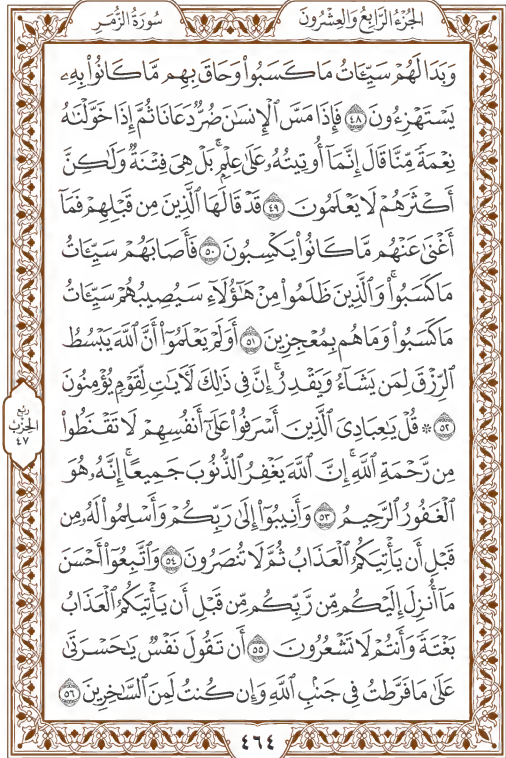 الجُزْءُ الرَّابِعُ وَالعِشْرُونَ
سُورَةُ الزُّمَرِ
وَبَدَا لَهُمْ سَيِّـَٔاتُ مَا كَسَبُوا۟ وَحَاقَ بِهِم مَّا كَانُوا۟ بِهِۦ
يَسْتَهْزِءُونَ ٤٨ فَإِذَا مَسَّ ٱلْإِنسَٰنَ ضُرٌّ دَعَانَا ثُمَّ إِذَا خَوَّلْنَٰهُ
نِعْمَةً مِّنَّا قَالَ إِنَّمَآ أُوتِيتُهُۥ عَلَىٰ عِلْمٍۭ ۚ بَلْ هِىَ فِتْنَةٌ وَلَٰكِنَّ
أَكْثَرَهُمْ لَا يَعْلَمُونَ ٤٩ قَدْ قَالَهَا ٱلَّذِينَ مِن قَبْلِهِمْ فَمَآ
أَغْنَىٰ عَنْهُم مَّا كَانُوا۟ يَكْسِبُونَ ٥٠ فَأَصَابَهُمْ سَيِّـَٔاتُ
مَا كَسَبُوا۟ ۚ وَٱلَّذِينَ ظَلَمُوا۟ مِنْ هَٰٓؤُلَآءِ سَيُصِيبُهُمْ سَيِّـَٔاتُ
مَا كَسَبُوا۟ وَمَا هُم بِمُعْجِزِينَ ٥١ أَوَلَمْ يَعْلَمُوٓا۟ أَنَّ ٱللَّهَ يَبْسُطُ
ٱلرِّزْقَ لِمَن يَشَآءُ وَيَقْدِرُ ۚ إِنَّ فِى ذَٰلِكَ لَءَايَٰتٍ لِّقَوْمٍ يُؤْمِنُونَ
٥٢ ۞ قُلْ يَٰعِبَادِىَ ٱلَّذِينَ أَسْرَفُوا۟ عَلَىٰٓ أَنفُسِهِمْ لَا تَقْنَطُوا۟
مِن رَّحْمَةِ ٱللَّهِ ۚ إِنَّ ٱللَّهَ يَغْفِرُ ٱلذُّنُوبَ جَمِيعًا ۚ إِنَّهُۥ هُوَ
ٱلْغَفُورُ ٱلرَّحِيمُ ٥٣ وَأَنِيبُوٓا۟ إِلَىٰ رَبِّكُمْ وَأَسْلِمُوا۟ لَهُۥ مِن
قَبْلِ أَن يَأْتِيَكُمُ ٱلْعَذَابُ ثُمَّ لَا تُنصَرُونَ ٥٤ وَٱتَّبِعُوٓا۟ أَحْسَنَ
مَآ أُنزِلَ إِلَيْكُم مِّن رَّبِّكُم مِّن قَبْلِ أَن يَأْتِيَكُمُ ٱلْعَذَابُ
بَغْتَةً وَأَنتُمْ لَا تَشْعُرُونَ ٥٥ أَن تَقُولَ نَفْسٌ يَٰحَسْرَتَىٰ
عَلَىٰ مَا فَرَّطتُ فِى جَنۢبِ ٱللَّهِ وَإِن كُنتُ لَمِنَ ٱلسَّٰخِرِينَ ٥٦
ربع
الحزب
٤٧
٤٦٤